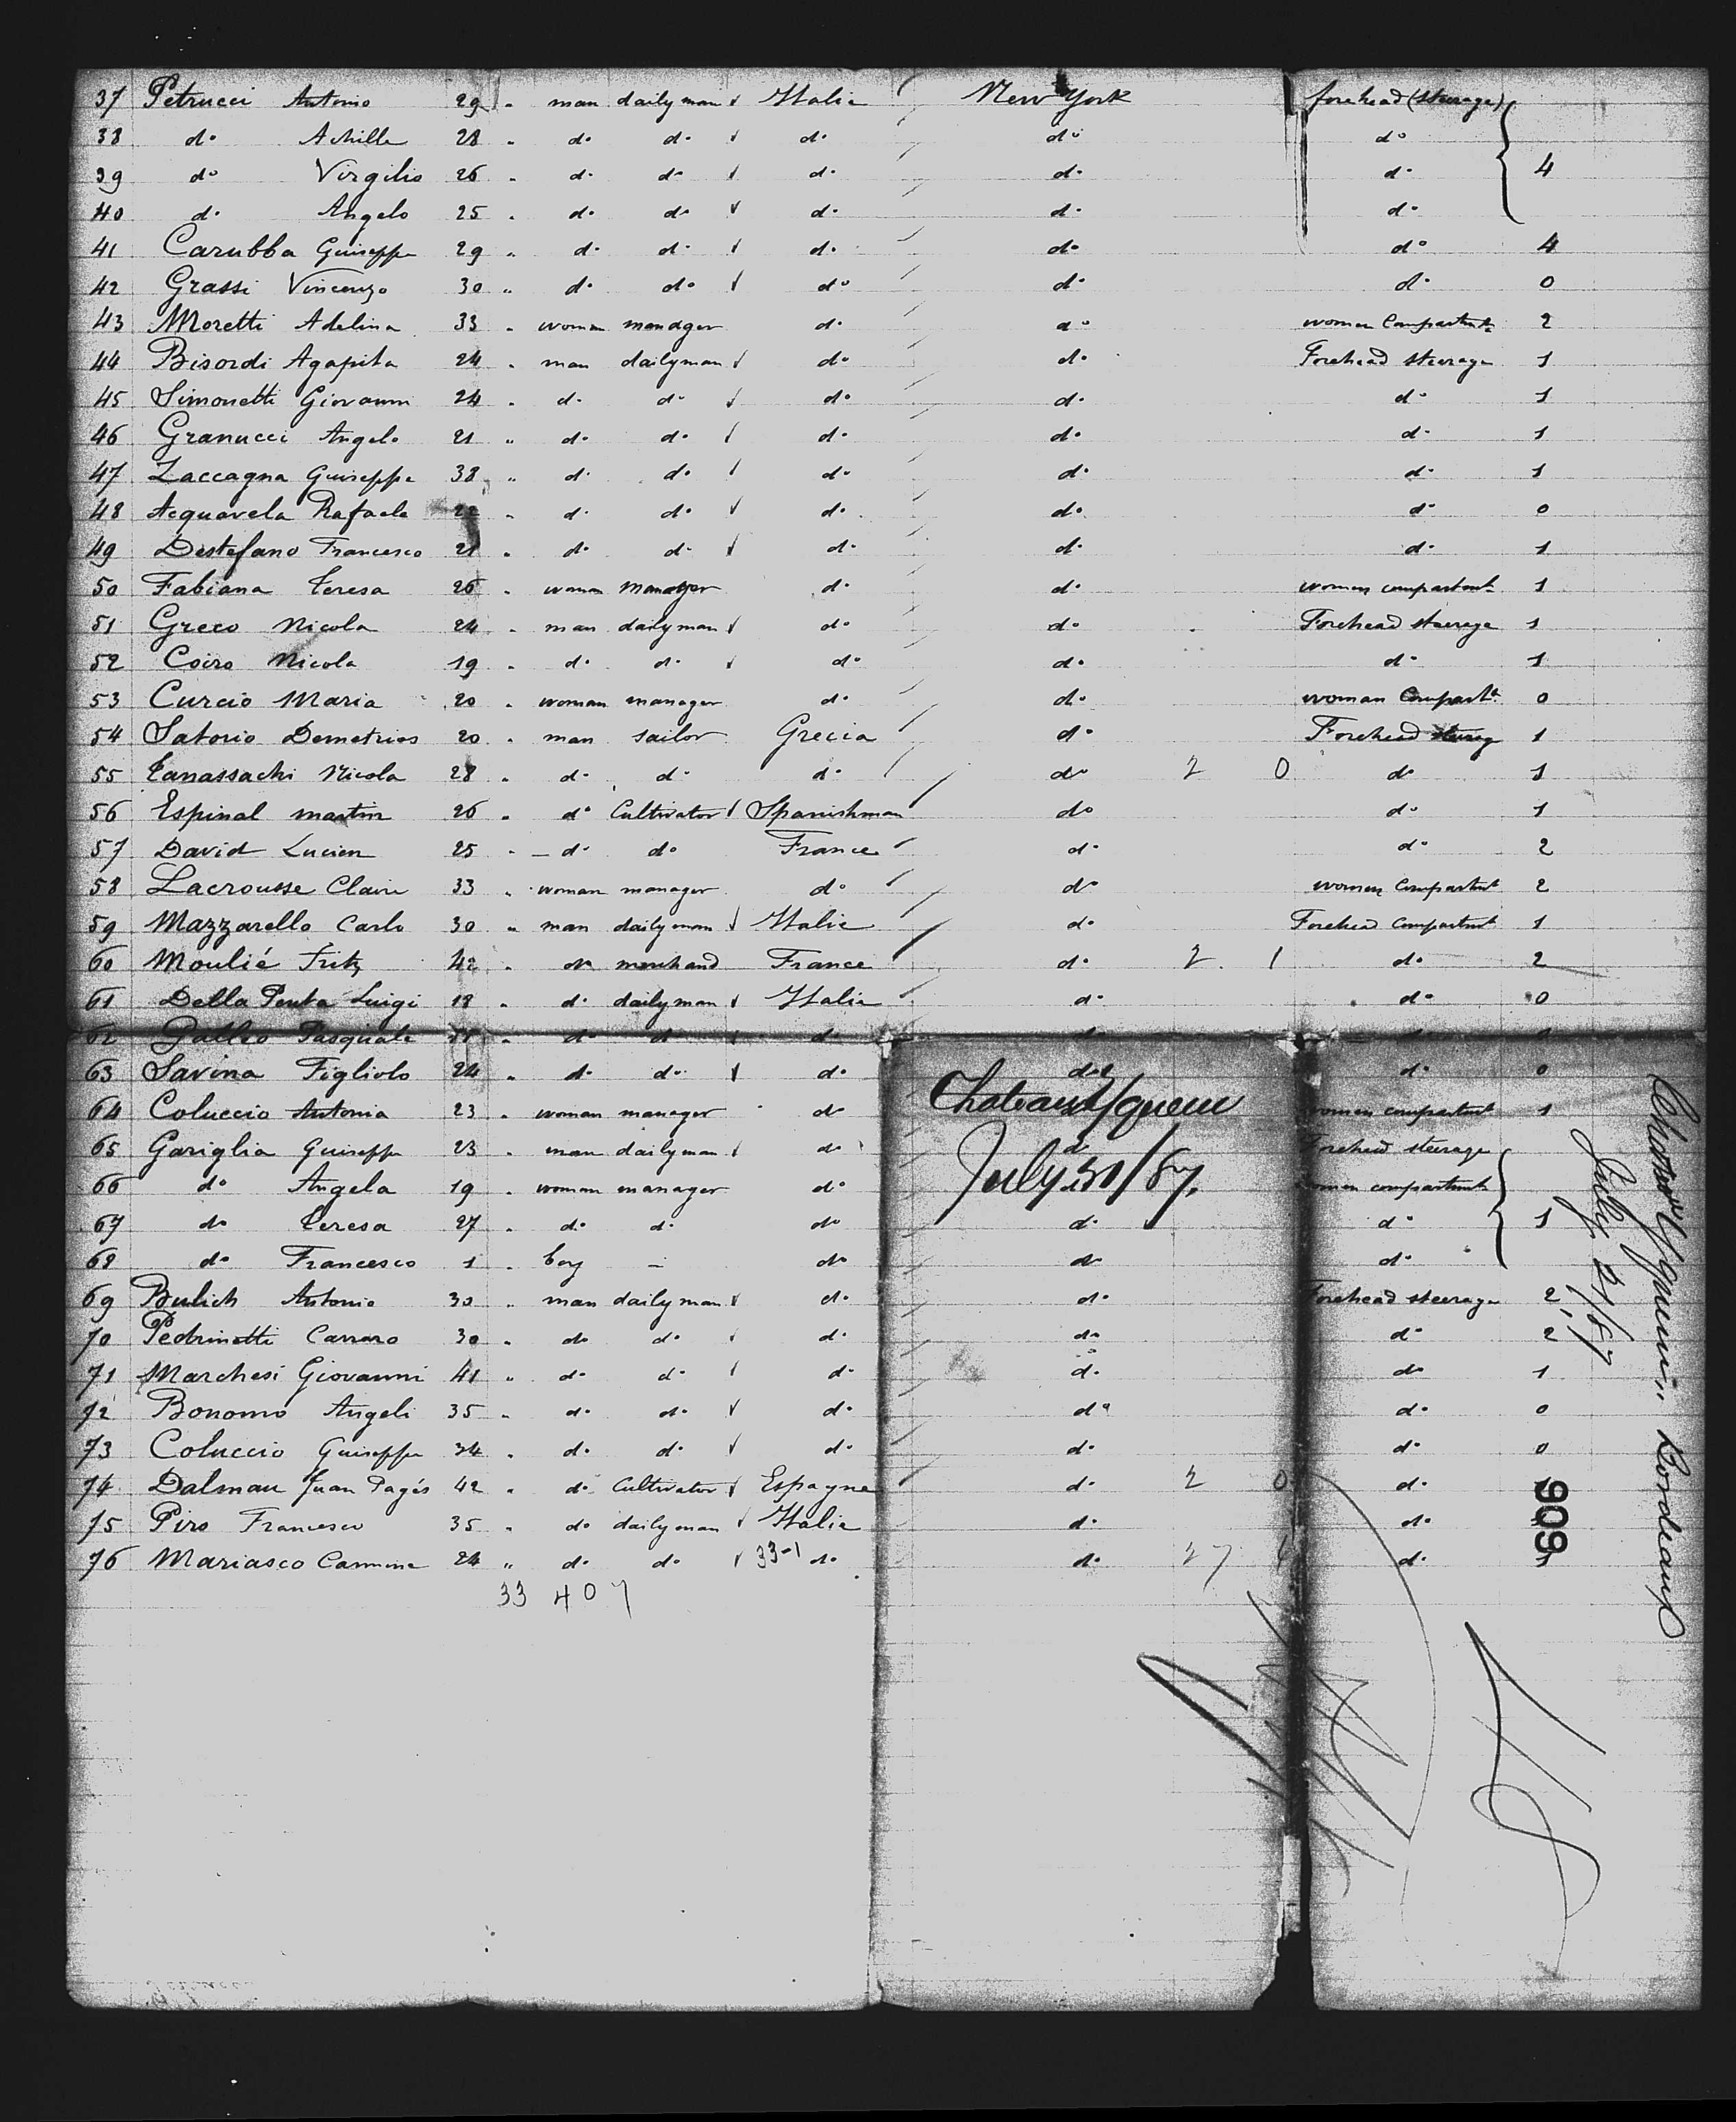 37 Petrucci Antonio 29 " man dailyman Italie New York forehead (steerage)
38 do Achille 28 " do do do do do
39 do Virgilio 26 " do do do do do 4
40 do Angelo 25 " do do do do do
41 Carubba Guiseppe 29 " do do do do do 4
42 Grassi Vincenzo 30 " do do do do do 0
43 Moretti Adelina 33 " woman manager do do woman Compartmt 2
44 Bisordi Agapita 24 " man dailyman do do Forehead steerage 1
45 Simonetti Giovanni 24 " do do do do do 1
46 Granucci Angelo 21 " do do do do do 1
47 Zaccagna Guiseppe 38 " do do do do do 1
48 Acquavela Rafaele 22 " do do do do do 0
49 Destefano Francesco 21 " do do do do do 1
50 Fabiana Teresa 26 " woman manager do do women compartmt 1
51 Greco Nicola 24 " man dailyman do do Forehead steerage 1
52 Coiro Nicola 19 " do do do do do 1
53 Curcio Maria 20 " woman manager do do woman Compartt 0
54 Satorio Demetrios 20 " man sailor Grecia do Forehead steerag 1
55 Tanassachi Nicola 28 " do do do do 2 0 do 1
56 Espinal martin 26 " do Cultivator Spanishman do do 1
57 David Lucien 25 " do do France do do 2
58 Lacrousse Claire 33 " woman manager do do women Compartmt 2
59 Mazzarello Carlo 30 " man dailyman Italie do Forehead Compartmt 1
60 Moulié Fritz 42 " do marchand France do 2 1 do 2
61 Della Penta Luigi 18 " do dailyman Italie do do 0
62 Pasquale " do do do do do
63 Savina Figliolo 24 " do do do do do 0
64 Coluccio Antonia 23 " woman manager do women compartmt 1
Chateau Yquem
65 Gariglia Guiseppe 23 " man dailyman do do Forehead steerage
66 do Angela 19 " woman manager do women compartmt
July 30/87.
67 do Teresa 27 " do do do do do 1
68 do Francesco 1 " boy – do do do
69 Bulich Antonio 30 " man dailyman do do Forehead steerage 2
70 Pedrinetti Carraro 30 " do do do do do 2
71 Marchesi Giovanni 41 " do do do do do 1
72 Bonomo Angeli 35 " do do do do do 0
73 Coluccio Guiseppe 34 " do do do do do 0
74 Dalmau Juan Pagés 42 " do Cultivator Espagne do 2 0 do 1
75 Piro Francesco 35 " do dailyman Italie do do
76 Mariasco Carmine 24 " do do 33-1 do do 27 do 1
33 40 7
Chateau Yquem Bordeaux
July 31/87
909